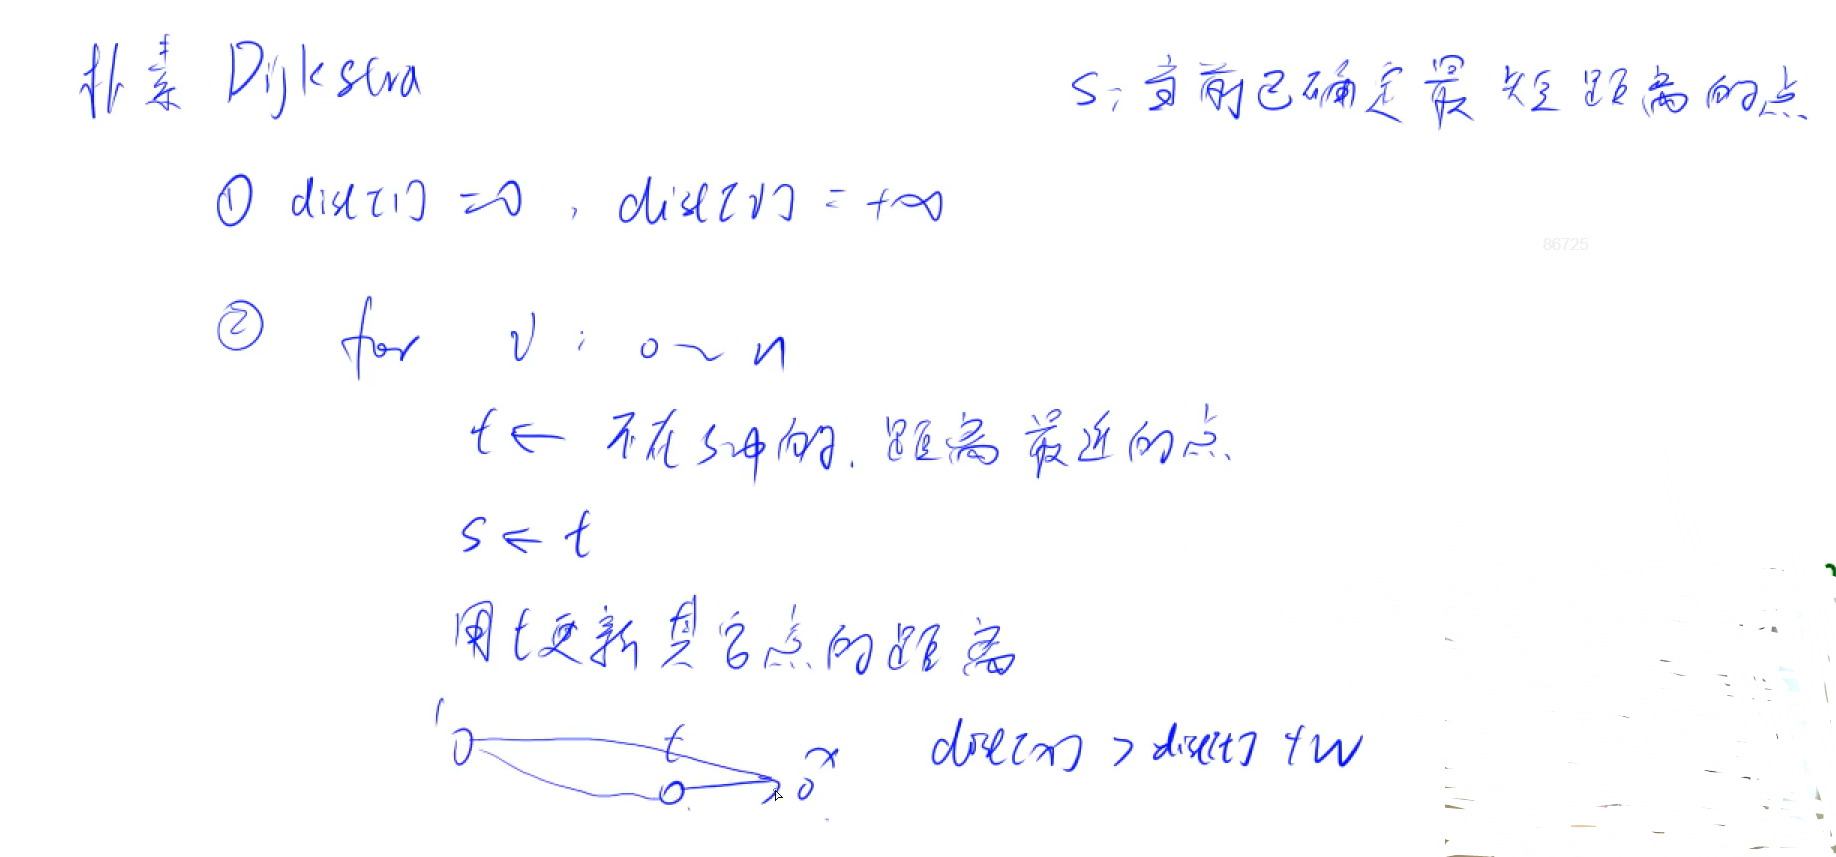 朴素 Dijkstra
S:当前已确定最短距离的点
① dist[1]=0, dist[v]=+∞
86725
② for v:0~n
t←不在s中的,距离最近的点
S←t
用t更新其它点的距离
1 t x
dist[x] > dist[t]+w